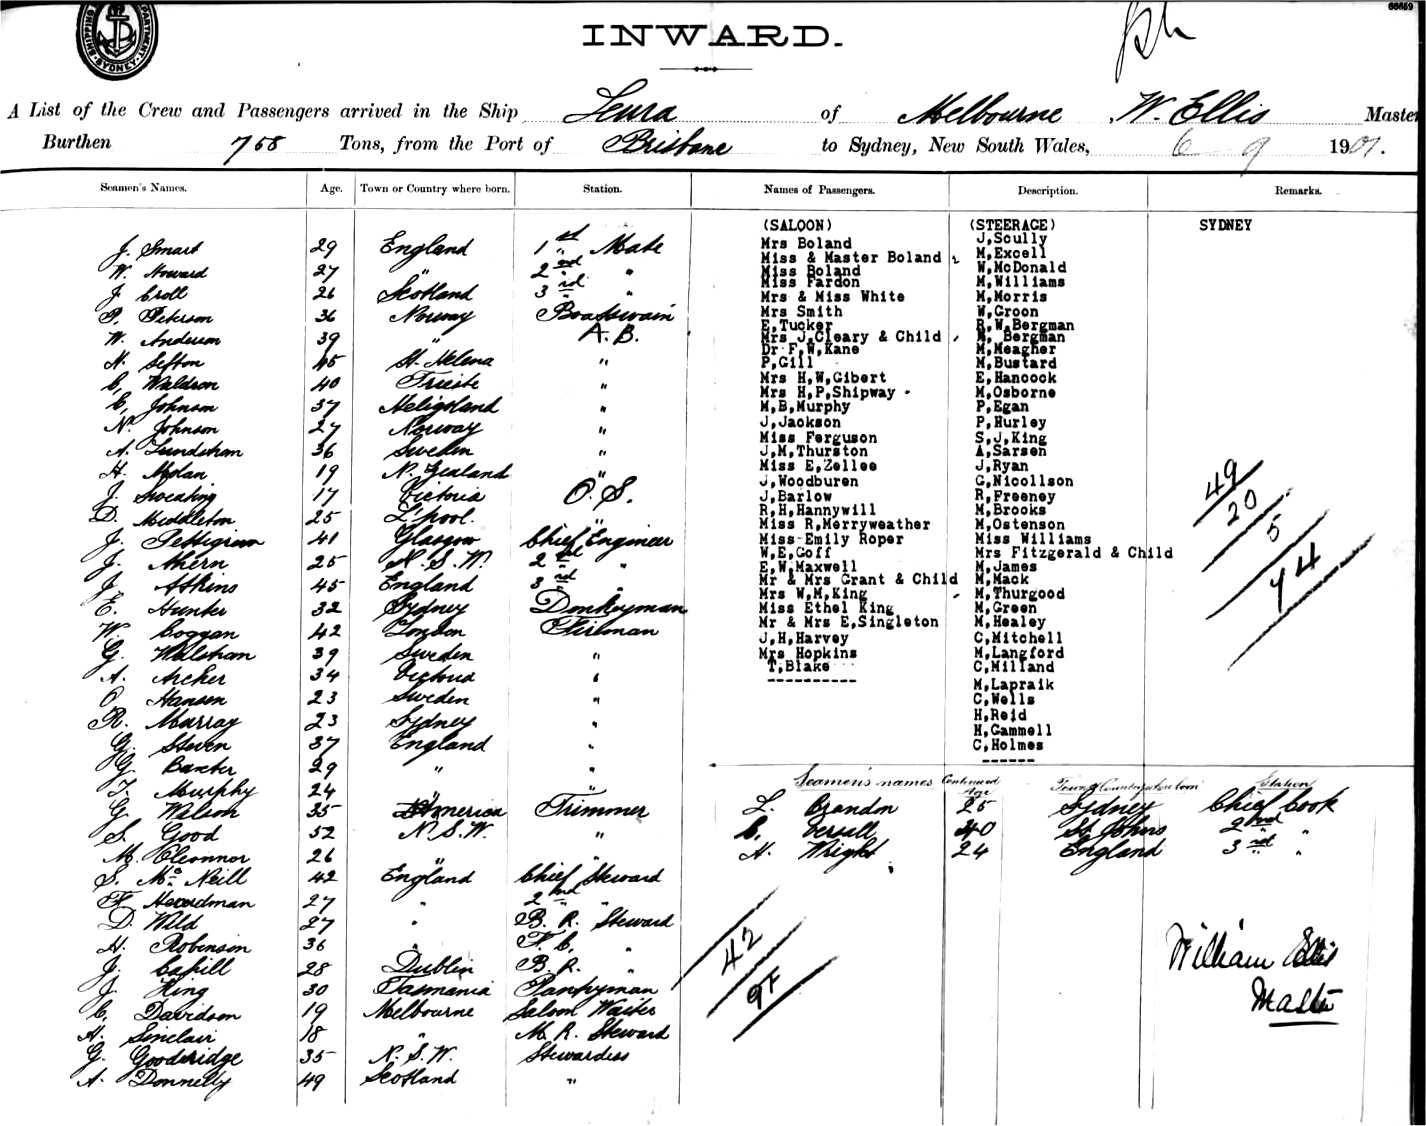 66659
SHIPPING DEPARTMENT SYDNEY
INWARD.
A List of the Crew and Passengers arrived in the Ship Leura of Melbourne, W. Ellis Master
Burthen 768 Tons, from the Port of Brisbane to Sydney, New South Wales, 6 9 1901.
Seamen's Names. Age. Town or Country where born. Station. Names of Passengers. Description. Remarks.
J. Smart 29 England 1st Mate
W. Howard 27 " 2nd "
J. Croll 26 Scotland 3rd "
P. Peterson 36 Norway Boatswain
W. Anderson 39 " A.B.
H. Sefton 45 St. Helena "
C. Waldson 40 Trieste "
C. Johnson 37 Heligoland "
N. Johnson 27 Norway "
A. Lundstrom 36 Sweden "
H. Nolan 19 N. Zealand "
J. Sweating 17 Victoria O.S.
D. Middleton 25 L'pool. "
J. Pettigrew 41 Glasgow Chief Engineer
J. Ahern 25 N.S.W. 2nd "
J. Atkins 45 England 3rd "
E. Hunter 32 Sydney Donkeyman
W. Coggan 42 London Fireman
G. Walstrom 39 Sweden "
A. Archer 34 Victoria "
O. Hansen 23 Sweden "
R. Murray 23 Sydney "
G. Steven 37 England "
G. Baxter 29 " "
T. Murphy 24 " "
G. Wilson 35 America Trimmer
S. Good 52 N.S.W. "
M. O'Connor 26 " "
S. McNeill 42 England Chief Steward
F. Heverdman 27 " 2nd "
D. Wild 27 " B.R. Steward
H. Robinson 36 " F.C. "
J. Cahill 28 Dublin B.R. "
J. King 30 Tasmania Pantryman
C. Davidson 19 Melbourne Saloon Waiter
H. Sinclair 18 " M.R. Steward
G. Gooderidge 35 N.S.W. Stewardess
A. Donnelly 49 Scotland "
(SALOON)
Mrs Boland
Miss & Master Boland
Miss Boland
Miss Fardon
Mrs & Miss White
Mrs Smith
E,Tucker
Mrs J,Cleary & Child
Dr F,W,Kane
P,Gill
Mrs H,W,Gibert
Mrs H,P,Shipway
M,B,Murphy
J,Jackson
Miss Ferguson
J,M,Thurston
Miss E,Zellee
J,Woodburen
J,Barlow
R,H,Hannywill
Miss R,Merryweather
Miss Emily Roper
W,E,Goff
E,W,Maxwell
Mr & Mrs Grant & Child
Mrs W,M,King
Miss Ethel King
Mr & Mrs E,Singleton
J,H,Harvey
Mrs Hopkins
T,Blake
----------
(STEERAGE)
J,Scully
M,Excell
W,McDonald
M,Williams
M,Morris
W,Groon
R,W,Bergman
Bergman
M,Meagher
M,Bustard
E,Hancock
M,Osborne
P,Egan
P,Hurley
S,J,King
A,Sarsen
J,Ryan
G,Nicollson
R,Freeney
M,Brooks
M,Ostenson
Miss Williams
Mrs Fitzgerald & Child
M,James
M,Mack
M,Thurgood
M,Green
M,Healey
C,Mitchell
M,Langford
C,Milland
M,Lapraik
C,Wells
H,Reid
H,Gammell
C,Holmes
------
SYDNEY
49
20
5
74
Seamen's names Continued Age Town or Country where born Station
L. Brandon 25 Sydney Chief Cook
C. Versall 40 St Johns 2nd "
H. Wright 24 England 3rd "
42
William Ellis
Master